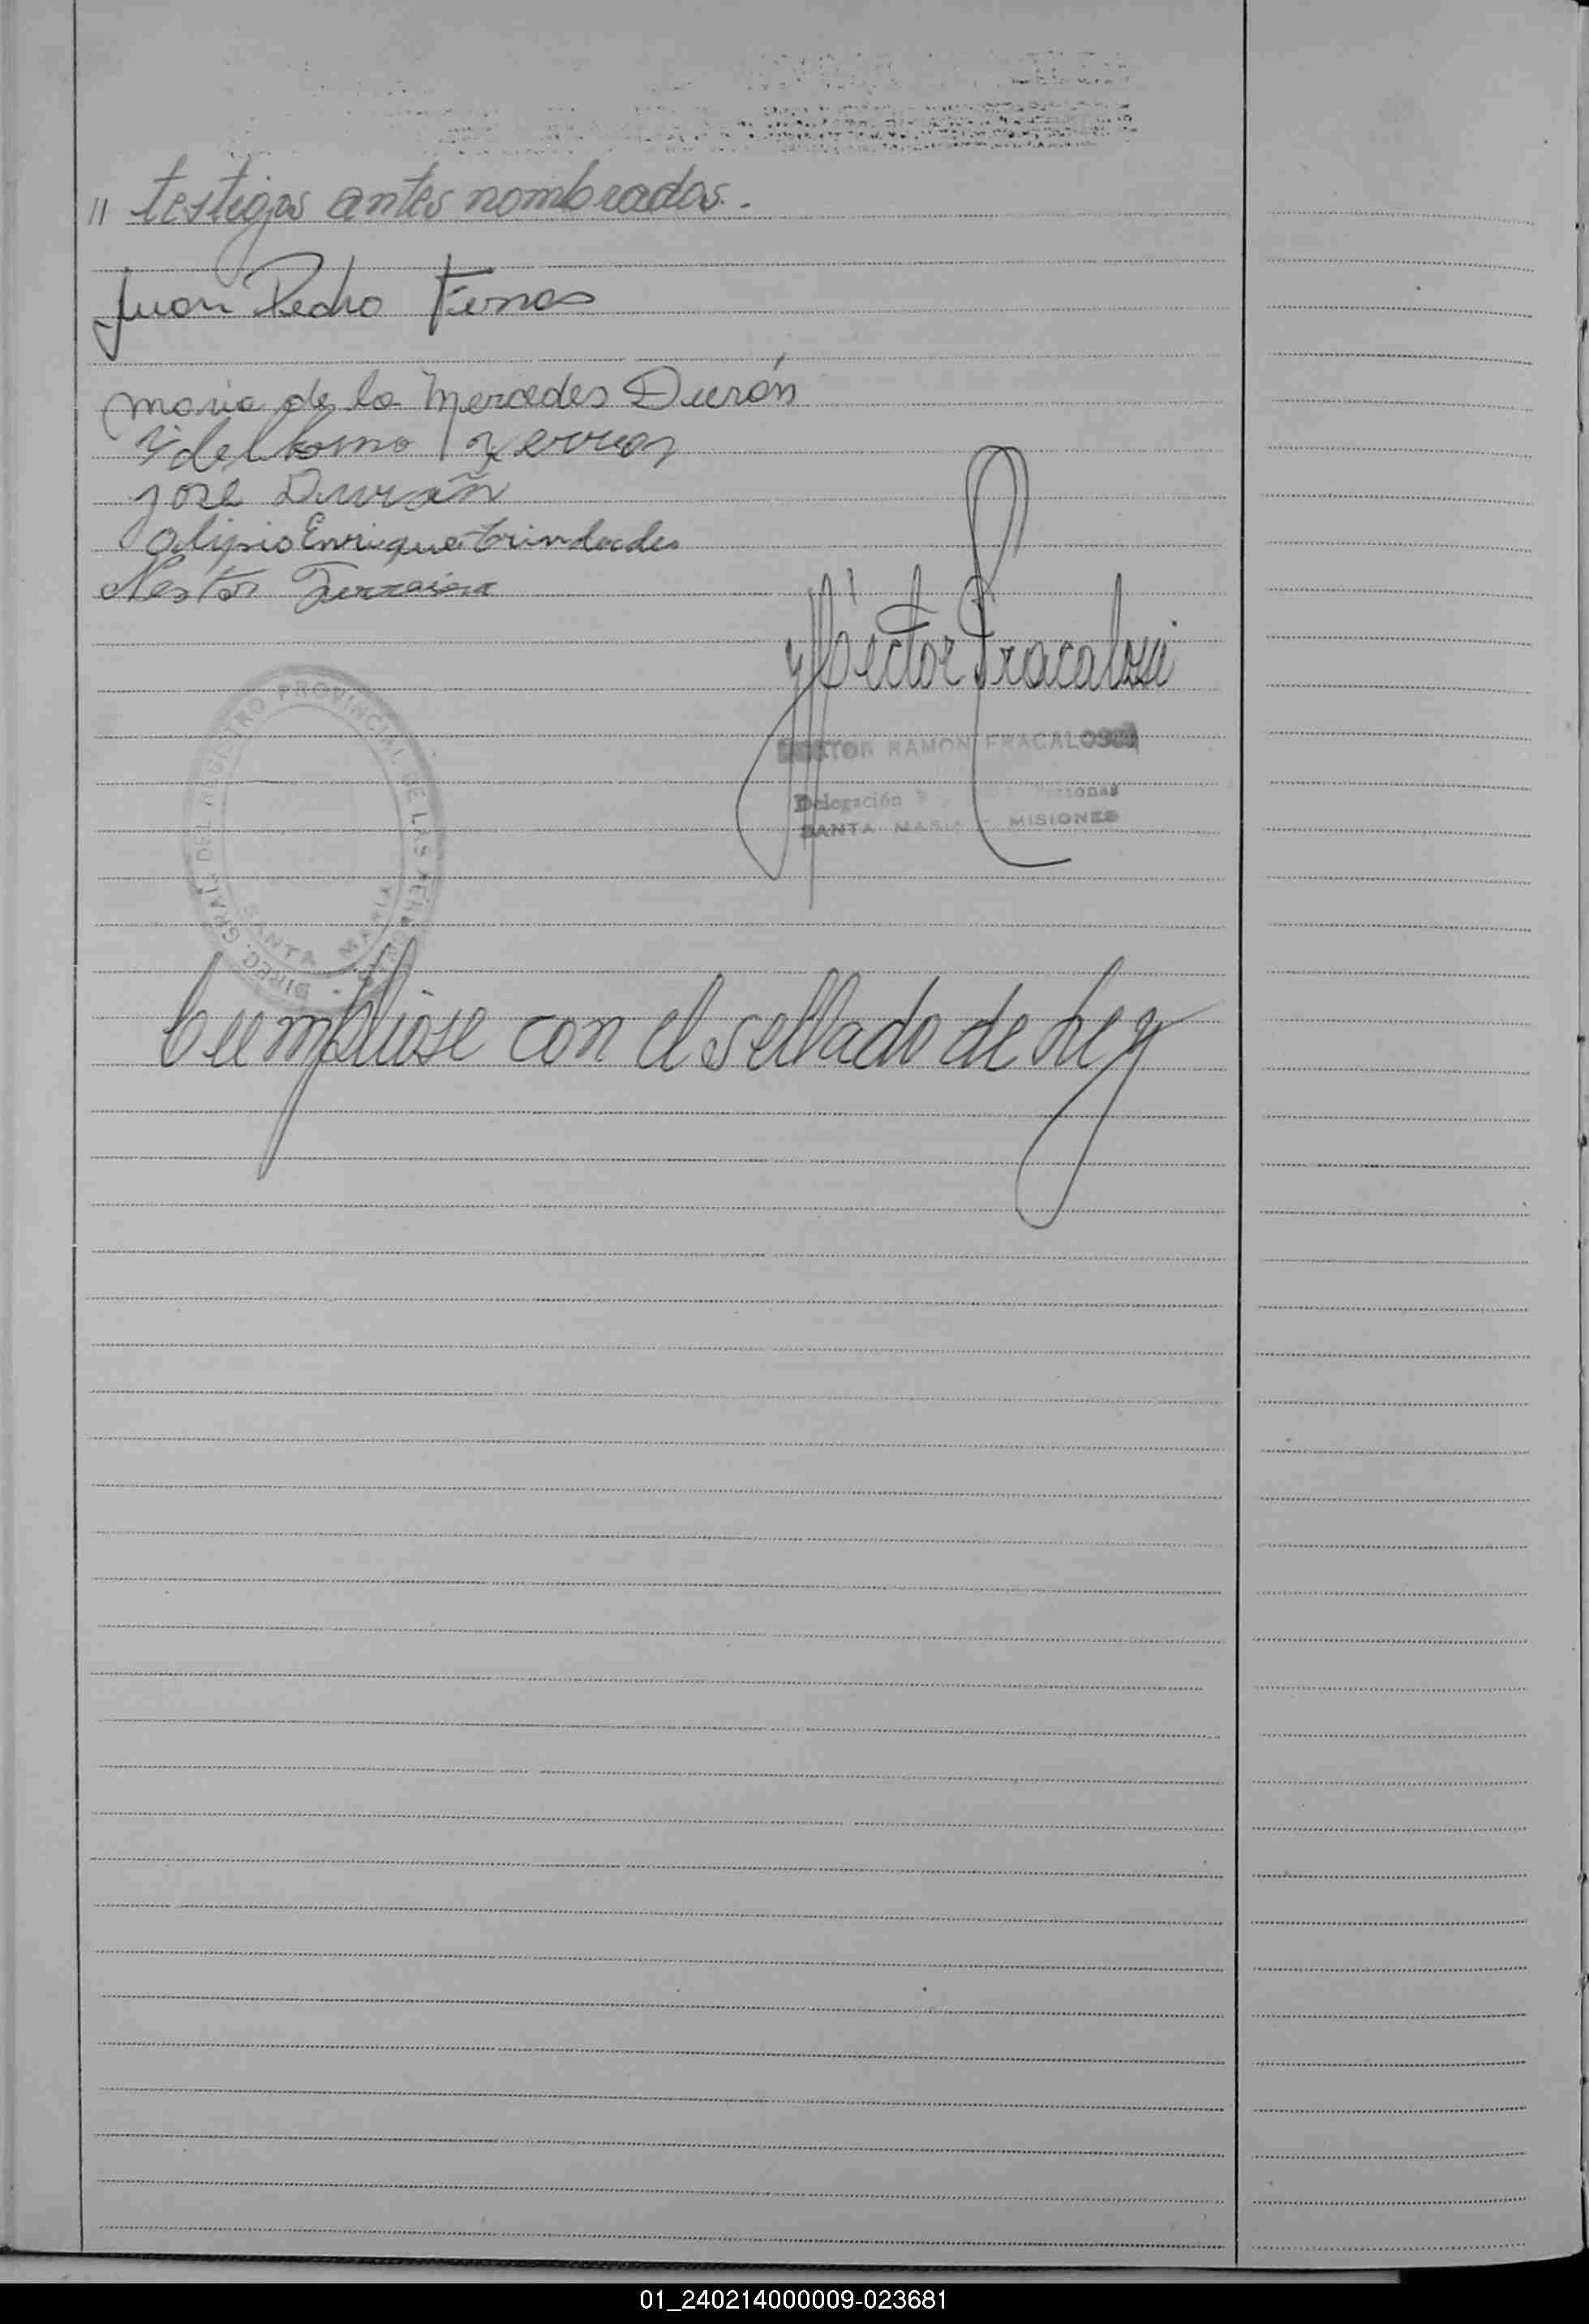 // testigos antes nombrados.-
Juan Pedro
Maria de la Mercedes Durán
José Durán
Alipio Enrique Trindades
Nestor
Héctor Fracalossi
HECTOR RAMON FRACALOSSI
Delegación Personas
SANTA MARIA - MISIONES
DIREC. GRAL. DEL REGISTRO PROVINCIAL DE LAS PERSONAS
SANTA MARIA
Cumplióse con el sellado de Ley
01_240214000009-023681